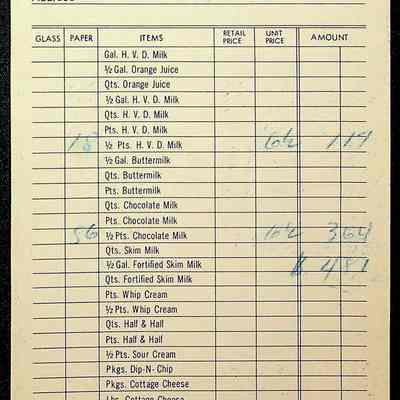 GLASS PAPER ITEMS RETAIL PRICE UNIT PRICE AMOUNT
Gal. H. V. D. Milk
½ Gal. Orange Juice
Qts. Orange Juice
½ Gal. H. V. D. Milk
Qts. H. V. D. Milk
Pts. H. V. D. Milk
18 ½ Pts. H. V. D. Milk 6½ 1 17
½ Gal. Buttermilk
Qts. Buttermilk
Pts. Buttermilk
Qts. Chocolate Milk
Pts. Chocolate Milk
56 ½ Pts. Chocolate Milk 6½ 3 64
Qts. Skim Milk
½ Gal. Fortified Skim Milk $ 4 81
Qts. Fortified Skim Milk
Pts. Whip Cream
½ Pts. Whip Cream
Qts. Half & Half
Pts. Half & Half
½ Pts. Sour Cream
Pkgs. Dip-N-Chip
Pkgs. Cottage Cheese
Lbs. Cottage Cheese